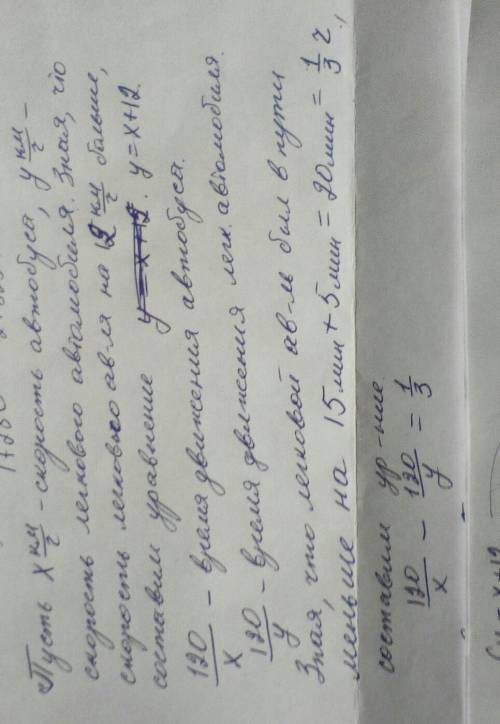 Пусть x км/ч - скорость автобуса, y км/ч -
скорость легкового автомобиля. Зная, что
скорость легкового ав-ля на 12 км/ч больше,
составим уравнение y = x + 12. y = x + 12.
120/x - время движения автобуса.
120/y - время движения легк. автомобиля.
Зная, что легковой ав-ль был в пути
меньше на 15 мин + 5 мин = 20 мин = 1/3 ч,
составим ур-ние
120/x - 120/y = 1/3